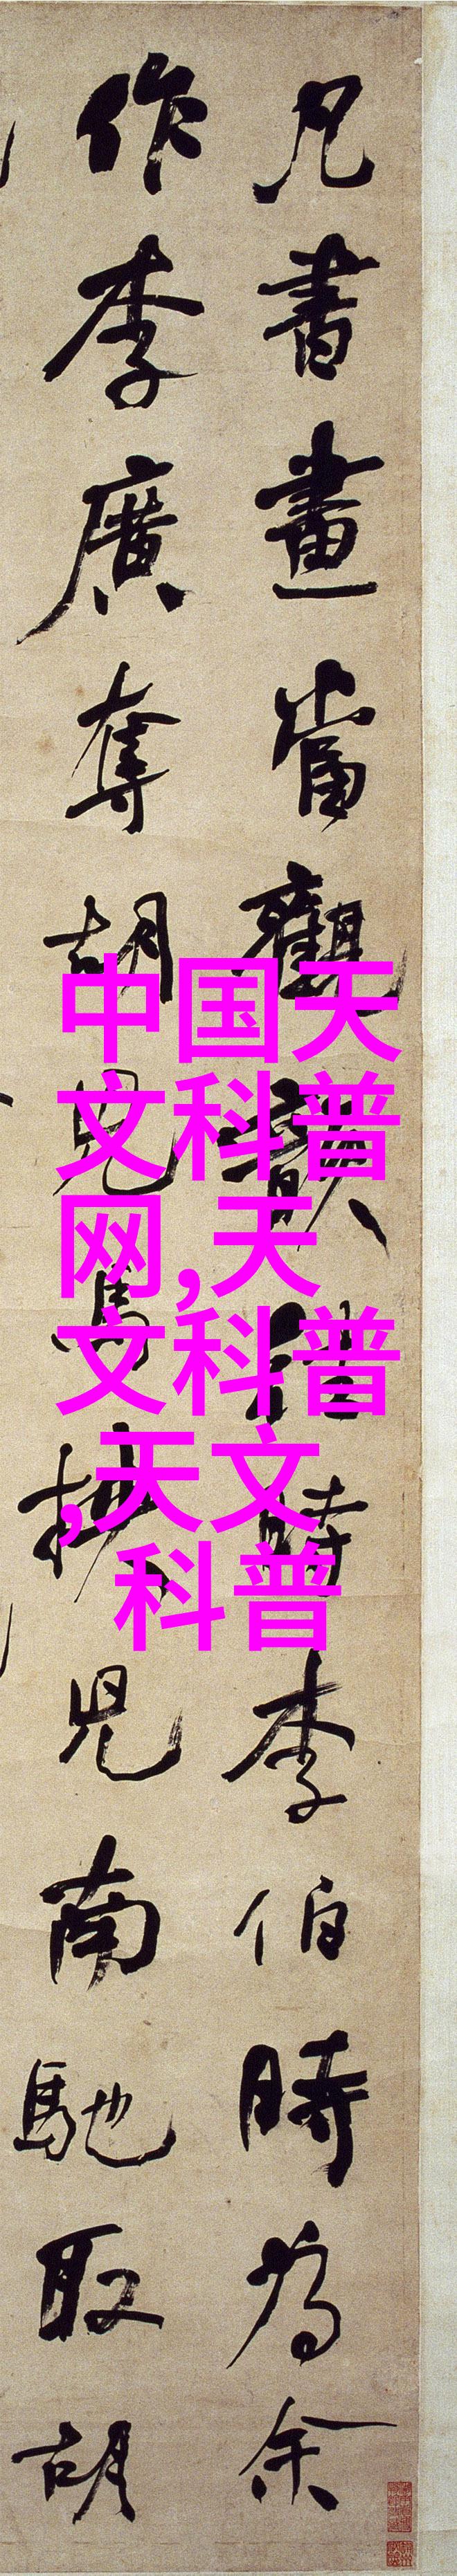 凡書畫當觀韻往時李伯時為余
作李廣奪胡兒馬挾兒南馳取胡
中国天
文科普
网,天
文科普
,天文
科普